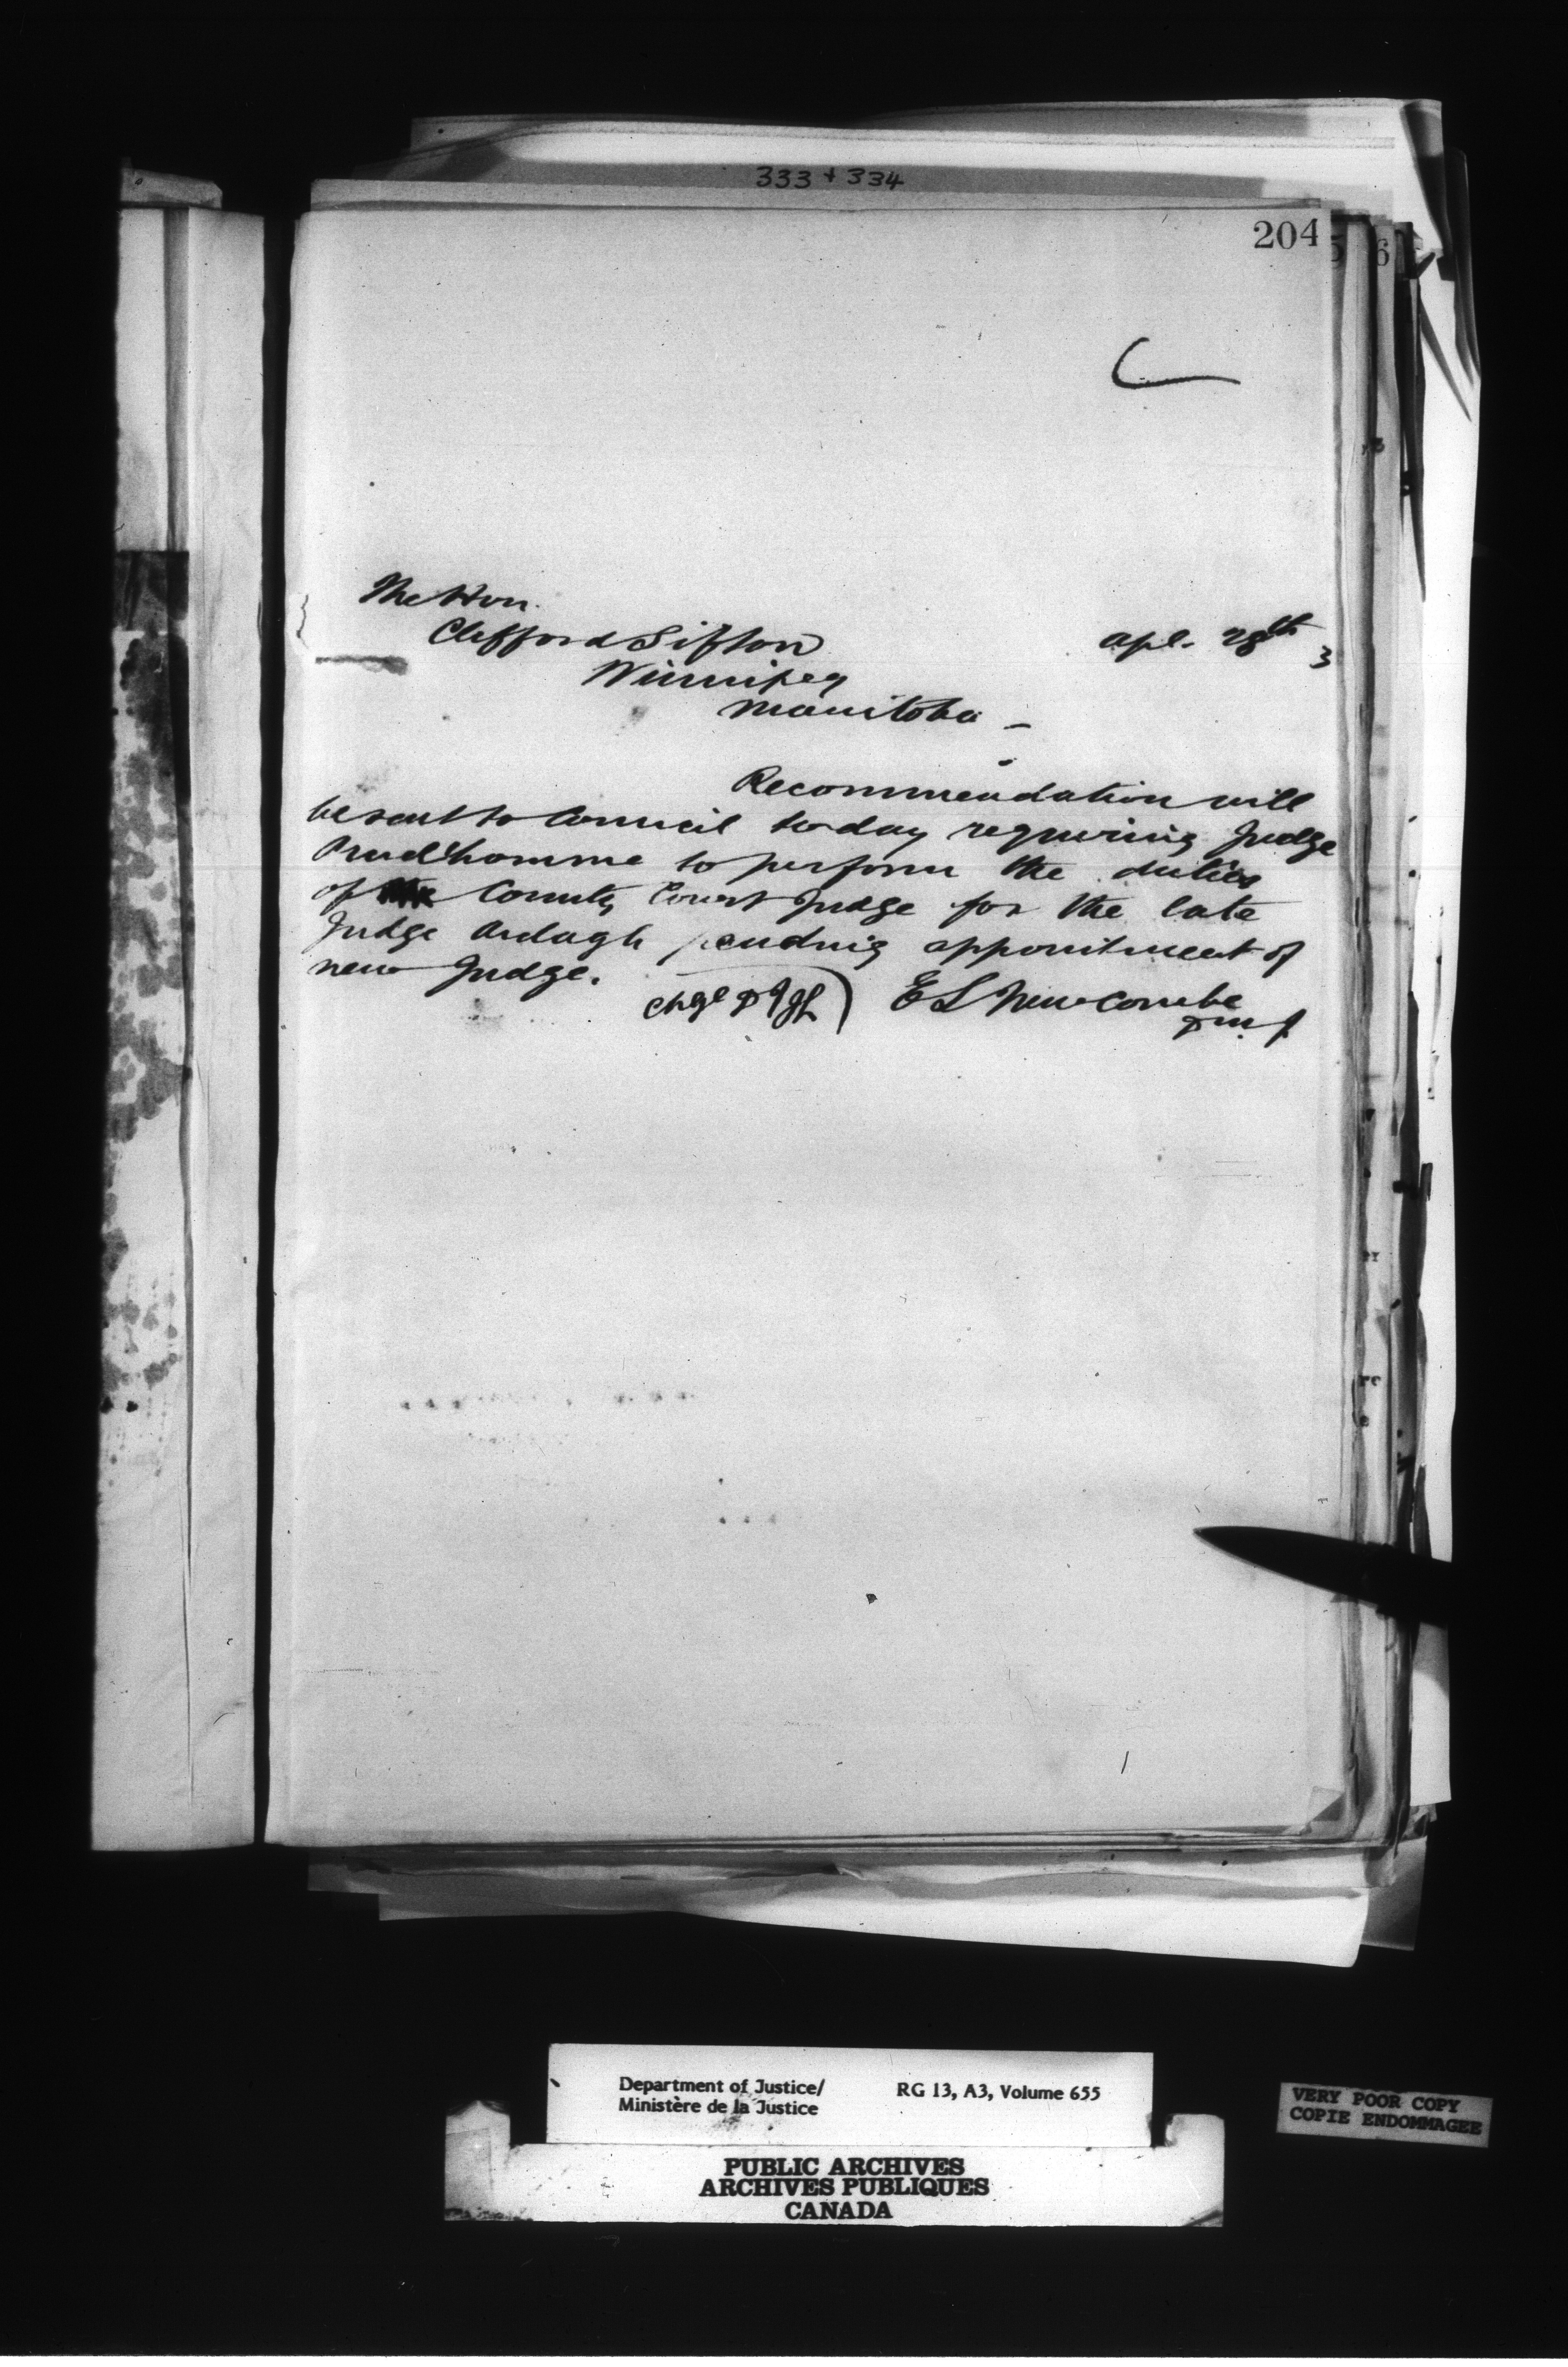 333 + 334
204
6
The Hon.
Clifford Sifton
Apl. 28th 3
Winnipeg
Manitoba -
Recommendation will
be sent to Council today requiring Judge
Prud'homme to perform the duties
of County Court Judge for the late
Judge Ardagh pending appointment of
new Judge.
E L Newcombe
D.M.J.
Department of Justice/
Ministère de la Justice
RG 13, A3, Volume 655
VERY POOR COPY
COPIE ENDOMMAGEE
PUBLIC ARCHIVES
ARCHIVES PUBLIQUES
CANADA